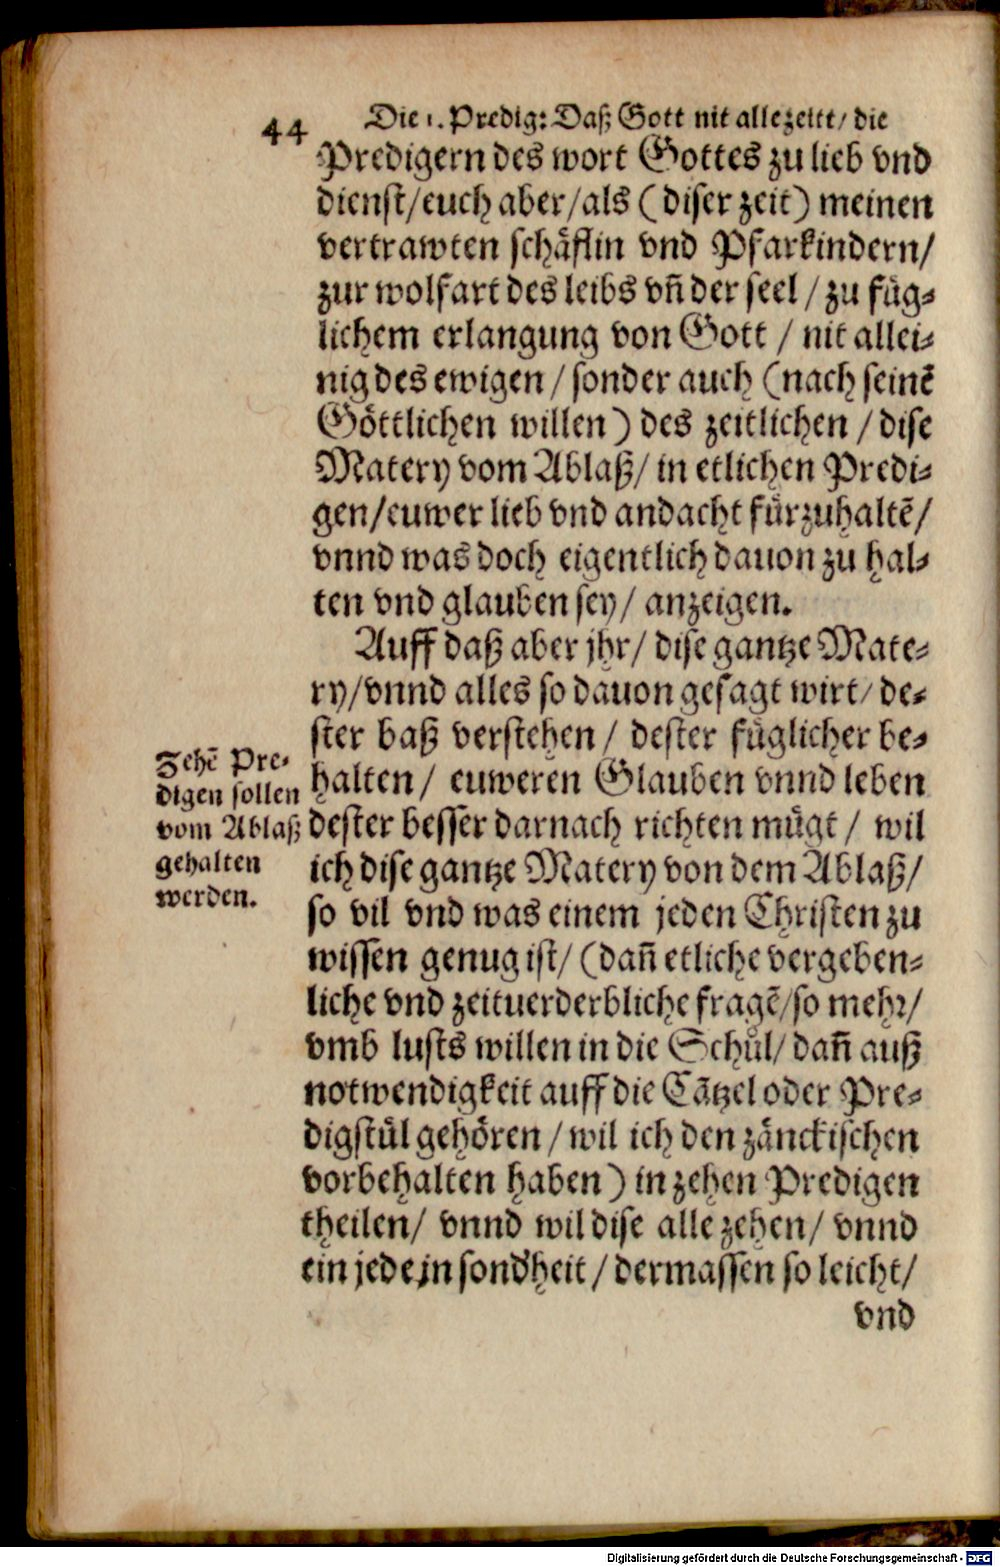 44 Die 1. Predig: Daß Gott nit allezeitt/ die
Predigern des wort Gottes zu lieb vnd
dienst/euch aber/als (diser zeit) meinen
vertrawten schäflin vnd Pfarkindern/
zur wolfart des leibs vñ der seel / zu füg-
lichem erlangung von Gott / nit allei-
nig des ewigen / sonder auch (nach seinẽ
Göttlichen willen) des zeitlichen / dise
Matery vom Ablaß/ in etlichen Predi-
gen/euwer lieb vnd andacht fürzuhaltẽ/
vnnd was doch eigentlich dauon zu hal-
ten vnd glauben sey/ anzeigen.
Auff daß aber jhr/ dise gantze Mate-
ry/vnnd alles so dauon gesagt wirt/ de-
ster baß verstehen / dester füglicher be-
halten/ euweren Glauben vnnd leben
dester besser darnach richten mügt / wil
ich dise gantze Matery von dem Ablaß/
so vil vnd was einem jeden Christen zu
wissen genug ist/ (dañ etliche vergeben-
liche vnd zeituerderbliche fragẽ/so mehr/
vmb lusts willen in die Schůl/ dañ auß
notwendigkeit auff die Cãtzel oder Pre-
digstül gehören / wil ich den zänckischen
vorbehalten haben) in zehen Predigen
theilen/ vnnd wil dise alle zehen/ vnnd
ein jede in sond'heit / dermassen so leicht/
vnd
Zehẽ Pre-
digen sollen
vom Ablaß
gehalten
werden.
Digitalisierung gefördert durch die Deutsche Forschungsgemeinschaft - DFG